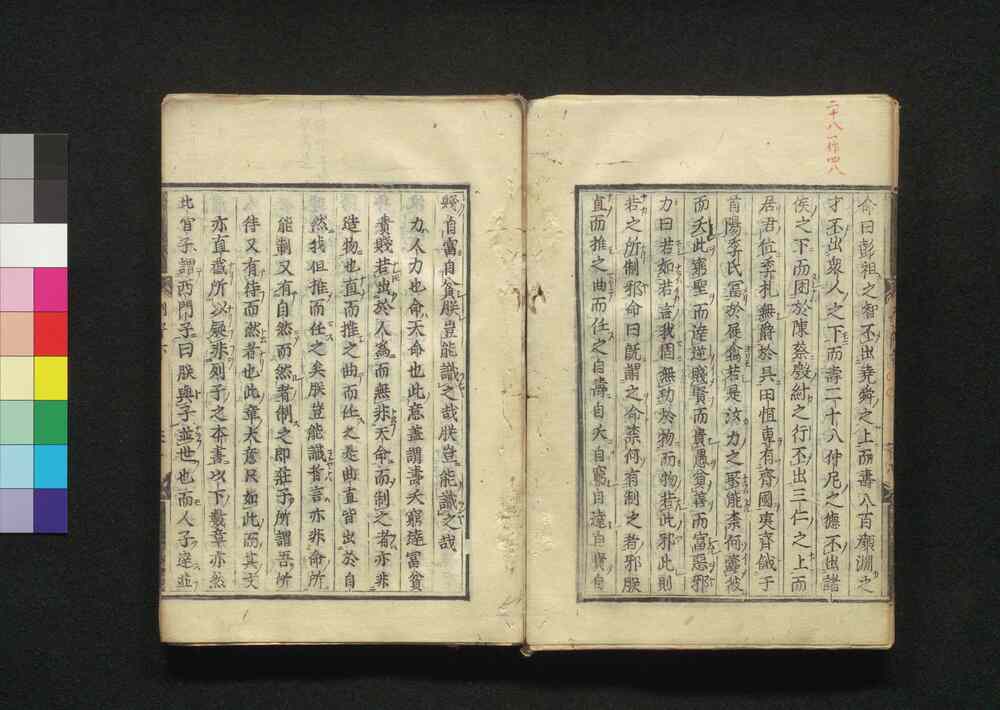 二十八一作四八
命曰彭祖之智不出堯舜之上而壽八百顔淵之
才不出衆人之下而壽二十八仲尼之德不出諸
侯之下而困於陳蔡殷紂之行不出三仁之上而
居君位季札無爵於呉田恒專有齊國夷齊餓于
首陽季氏冨於展禽若是汝力之所能柰何壽彼
而夭此窮聖而達逆賤賢而貴愚貧善而富惡邪
力曰若如若言我固無功於物而物若此邪此則
若之所制邪命曰既謂之命柰何有制之者邪朕
直而推之曲而任之自壽自夭自窮自達自貴自
賤自富自貧朕豈能識之哉朕豈能識之哉
力人力也命天命也此意蓋謂壽夭窮達冨貧
貴賤若出於人爲而無非天命而制之者亦非
造物也直而推之曲而任之是曲直皆出於自
然我但推而任之矣朕豈能識者言亦非命所
能制又有自然而然者制之即莊子所謂吾所
待又有待而然者也此章大意只如此而其文
亦直截所以疑非列子之本書以下數章亦然
北宮子謂西門子曰朕與子並世也而人子達並